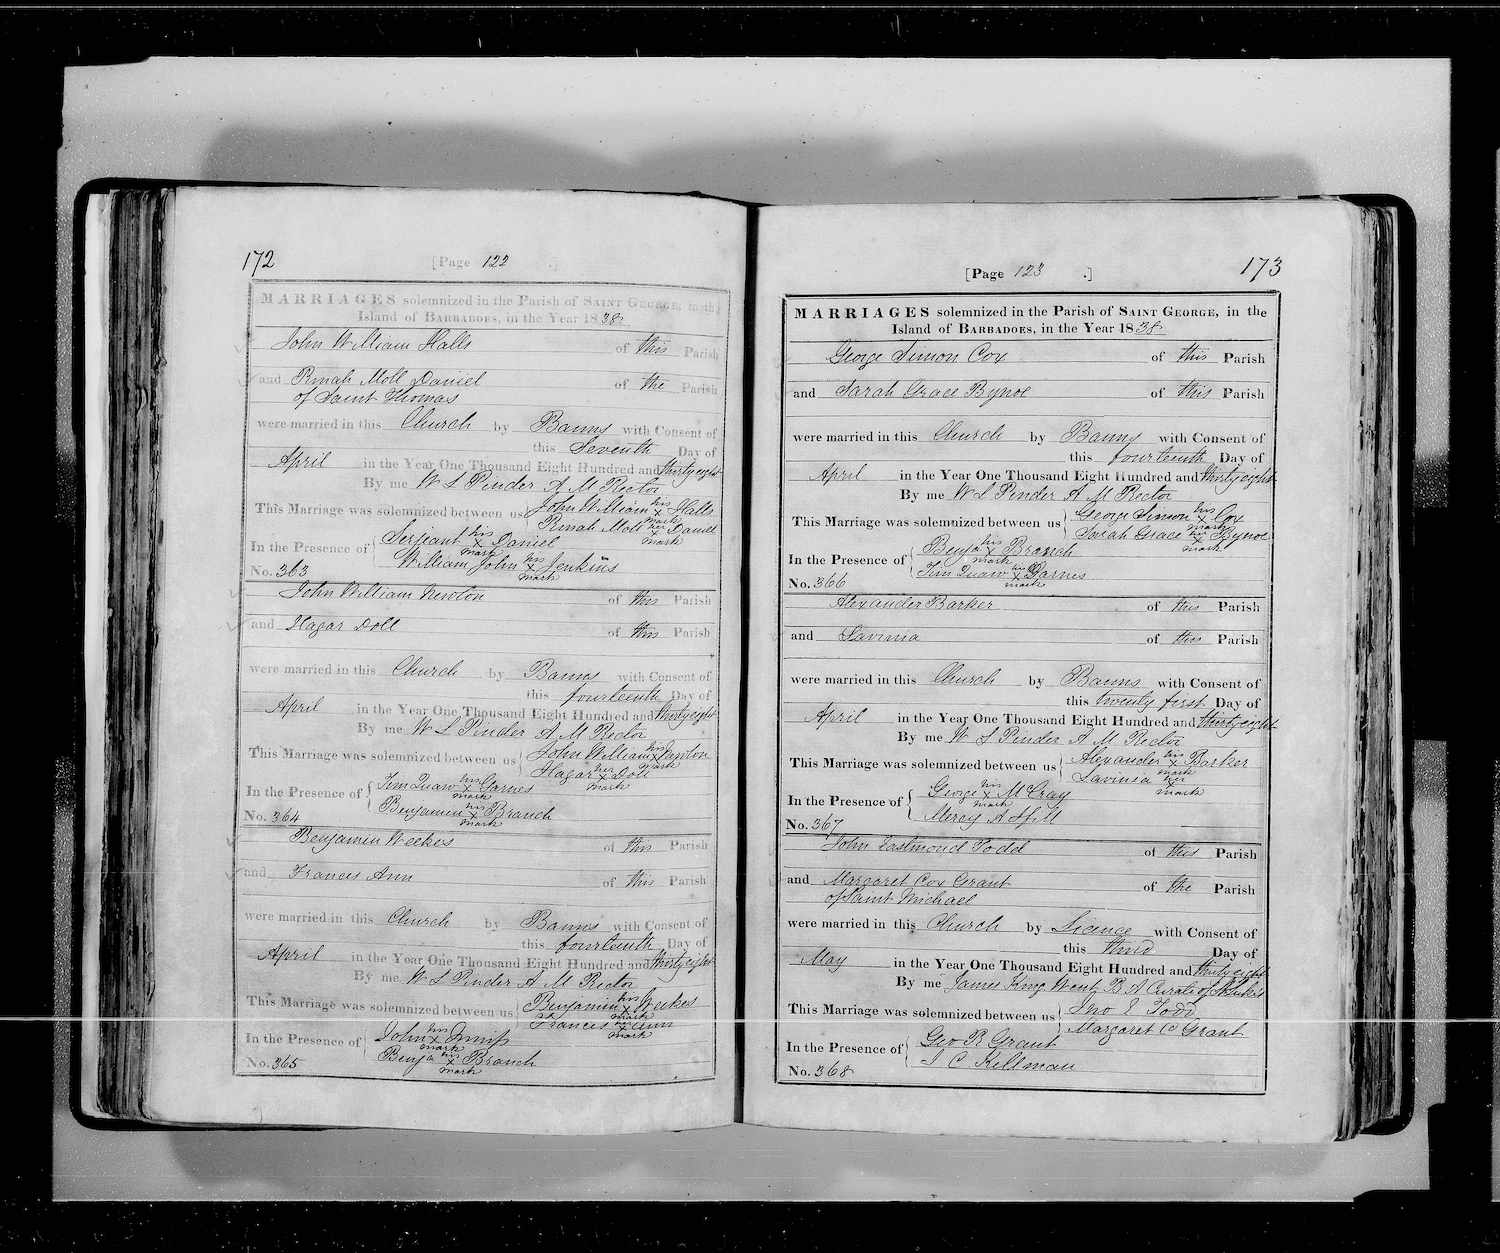 172
[Page 122 .]
MARRIAGES solemnized in the Parish of SAINT GEORGE, in the
Island of BARBADOES, in the Year 1838
John William Halls of this Parish
and Rinah Moll Daniel of the Parish
of Saint Thomas
were married in this Church by Banns with Consent of
this Seventh Day of
April in the Year One Thousand Eight Hundred and thirty eight
By me W S Pinder A M Rector
This Marriage was solemnized between us John William his x mark Halls
Rinah Moll her x mark Daniel
In the Presence of Serjeant his x mark Daniel
William John his x mark Jenkins
No. 363
John William Newton of this Parish
and Hagar Doll of this Parish
were married in this Church by Banns with Consent of
this fourteenth Day of
April in the Year One Thousand Eight Hundred and thirty eight
By me W S Pinder A M Rector
This Marriage was solemnized between us John William his x mark Newton
Hagar her x mark Doll
In the Presence of Tim Quaw his x mark Garnes
Benjamin his x mark Branch
No. 364
Benjamin Weekes of this Parish
and Frances Ann of this Parish
were married in this Church by Banns with Consent of
this fourteenth Day of
April in the Year One Thousand Eight Hundred and thirty eight
By me W S Pinder A M Rector
This Marriage was solemnized between us Benjamin his x mark Weekes
Frances her x mark Ann
In the Presence of John his x mark
Benja his x mark Branch
No. 365
173
[Page 123 .]
MARRIAGES solemnized in the Parish of SAINT GEORGE, in the
Island of BARBADOES, in the Year 1838
George Simon Cox of this Parish
and Sarah Grace Bynoe of this Parish
were married in this Church by Banns with Consent of
this fourteenth Day of
April in the Year One Thousand Eight Hundred and thirty eight
By me W S Pinder A M Rector
This Marriage was solemnized between us George Simon his x mark Cox
Sarah Grace her x mark Bynoe
In the Presence of Benja his x mark Branch
Tim Quaw his x mark Garnes
No. 366
Alexander Barker of this Parish
and Lavinia of this Parish
were married in this Church by Banns with Consent of
this twenty first Day of
April in the Year One Thousand Eight Hundred and thirty eight
By me W S Pinder A M Rector
This Marriage was solemnized between us Alexander his x mark Barker
Lavinia her x mark
In the Presence of George his x mark McCray
Mercy A Hill
No. 367
John Eastmond Todd of this Parish
and Margaret Cox Grant of the Parish
of Saint Michael
were married in this Church by Licence with Consent of
this third Day of
May in the Year One Thousand Eight Hundred and thirty eight
By me James King Went B A Curate of St Luke's
This Marriage was solemnized between us Jno E Todd
Margaret C Grant
In the Presence of Geo R Grant
J C Kellman
No. 368